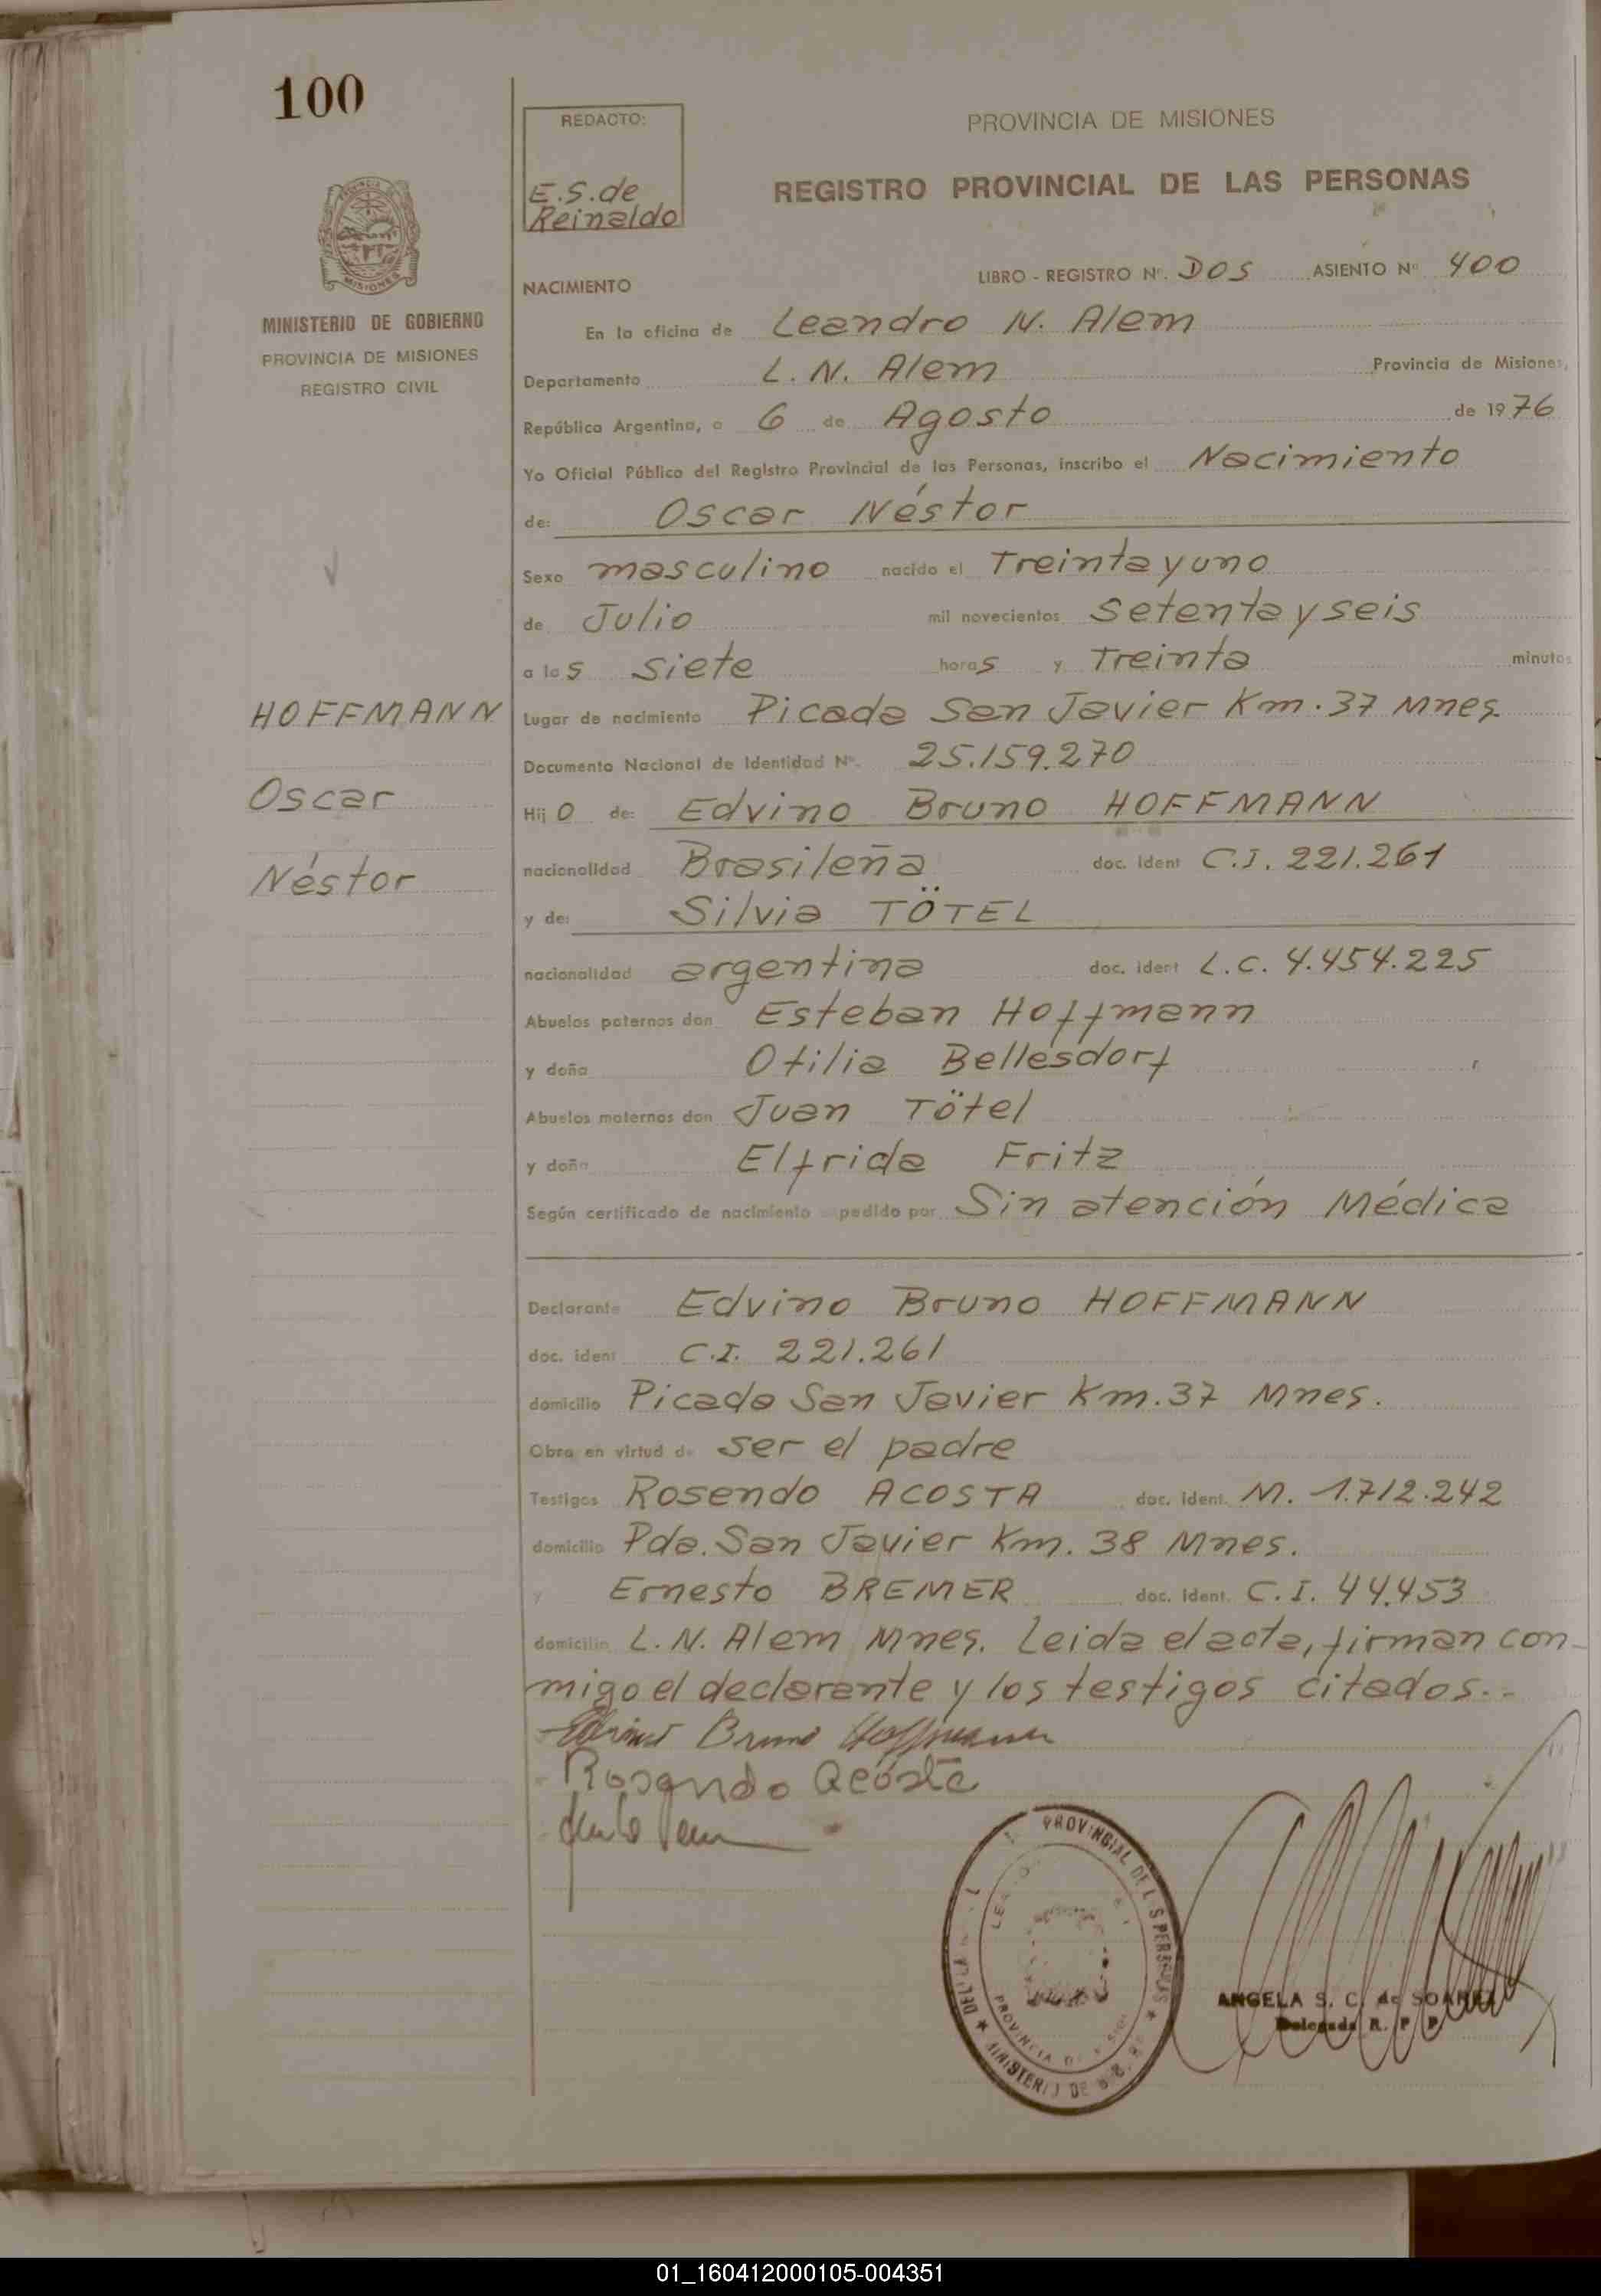 100
REDACTO:
E.S. de
Reinaldo
PROVINCIA DE MISIONES
REGISTRO PROVINCIAL DE LAS PERSONAS
MISIONES
MINISTERIO DE GOBIERNO
PROVINCIA DE MISIONES
REGISTRO CIVIL
NACIMIENTO
LIBRO - REGISTRO Nº. DOS ASIENTO Nº 400
En la oficina de Leandro N. Alem
Departamento L. N. Alem Provincia de Misiones,
República Argentina, a 6 de Agosto de 1976
Yo Oficial Público del Registro Provincial de las Personas, inscribo el Nacimiento
de: Oscar Néstor
Sexo masculino nacido el Treinta y uno
de Julio mil novecientos Setenta y seis
a las siete horas y Treinta minutos
HOFFMANN
Oscar
Néstor
Lugar de nacimiento Picada San Javier Km. 37 Mnes.
Documento Nacional de Identidad Nº. 25.159.270
Hijo de: Edvino Bruno HOFFMANN
nacionalidad Brasileña doc. ident C.I. 221.261
y de: Silvia TÖTEL
nacionalidad argentina doc. ident L.C. 4.454.225
Abuelos paternos don Esteban Hoffmann
y doña Otilia Bellesdorf
Abuelos maternos don Juan Tötel
y doña Elfrida Fritz
Según certificado de nacimiento expedido por Sin atención Médica
Declarante Edvino Bruno HOFFMANN
doc. ident C.I. 221.261
domicilio Picada San Javier Km. 37 Mnes.
Obra en virtud de ser el padre
Testigos Rosendo ACOSTA doc. ident. M. 1.712.242
domicilio Pda. San Javier Km. 38 Mnes.
y Ernesto BREMER doc. ident. C.I. 44.453
domicilio L. N. Alem Mnes. Leida el acta, firman con-
migo el declarante y los testigos citados.-
Bruno Hoffmann
Rosendo Acosta
PROVINCIAL DE LAS PERSONAS
PROVINCIA DE MISIONES
MINISTERIO DE
ANGELA S. C. de SOAREZ
Delegada R. P. P.
01_160412000105-004351